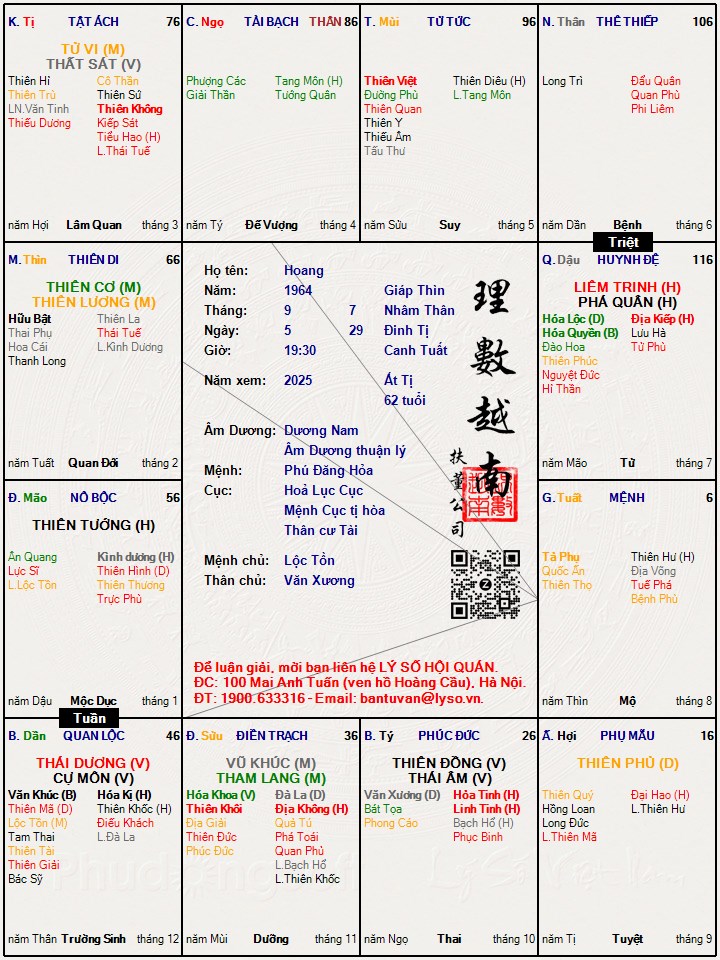 K. Tị TẬT ÁCH 76
TỬ VI (M)
THẤT SÁT (V)
Thiên Hỉ Cô Thần
Thiên Trù Thiên Sứ
LN.Văn Tinh Thiên Không
Thiếu Dương Kiếp Sát
Tiểu Hao (H)
L.Thái Tuế
năm Hợi Lâm Quan tháng 3
C. Ngọ TÀI BẠCH THÂN 86
Phượng Các Tang Môn (H)
Giải Thần Tướng Quân
năm Tý Đế Vượng tháng 4
T. Mùi TỬ TỨC 96
Thiên Việt Thiên Diêu (H)
Đường Phù L.Tang Môn
Thiên Quan
Thiên Y
Thiếu Âm
Tấu Thư
năm Sửu Suy tháng 5
N. Thân THÊ THIẾP 106
Long Trì Đẩu Quân
Quan Phù
Phi Liêm
năm Dần Bệnh tháng 6
Triệt
M. Thìn THIÊN DI 66
THIÊN CƠ (M)
THIÊN LƯƠNG (M)
Hữu Bật Thiên La
Thai Phụ Thái Tuế
Hoa Cái L.Kình Dương
Thanh Long
năm Tuất Quan Đới tháng 2
Họ tên: Hoang
Năm: 1964 Giáp Thìn
Tháng: 9 7 Nhâm Thân
Ngày: 5 29 Đinh Tị
Giờ: 19:30 Canh Tuất
Năm xem: 2025 Ất Tị
62 tuổi
Âm Dương: Dương Nam
Âm Dương thuận lý
Mệnh: Phú Đăng Hỏa
Cục: Hoả Lục Cục
Mệnh Cục tị hòa
Thân cư Tài
Mệnh chủ: Lộc Tồn
Thân chủ: Văn Xương
理數越南
扶董公司
Để luận giải, mời bạn liên hệ LÝ SỐ HỘI QUÁN.
ĐC: 100 Mai Anh Tuấn (ven hồ Hoàng Cầu), Hà Nội.
ĐT: 1900.633316 - Email: bantuvan@lyso.vn.
Q. Dậu HUYNH ĐỆ 116
LIÊM TRINH (H)
PHÁ QUÂN (H)
Hóa Lộc (D) Địa Kiếp (H)
Hóa Quyền (B) Lưu Hà
Đào Hoa Tử Phù
Thiên Phúc
Nguyệt Đức
Hỉ Thần
năm Mão Tử tháng 7
Đ. Mão NÔ BỘC 56
THIÊN TƯỚNG (H)
Ân Quang Kình dương (H)
Lực Sĩ Thiên Hình (D)
L.Lộc Tồn Thiên Thương
Trực Phù
năm Dậu Mộc Dục tháng 1
Tuần
G. Tuất MỆNH 6
Tả Phụ Thiên Hư (H)
Quốc Ấn Địa Võng
Thiên Thọ Tuế Phá
Bệnh Phù
năm Thìn Mộ tháng 8
B. Dần QUAN LỘC 46
THÁI DƯƠNG (V)
CỰ MÔN (V)
Văn Khúc (B) Hóa Kị (H)
Thiên Mã (D) Thiên Khốc (H)
Lộc Tồn (M) Điếu Khách
Tam Thai L.Đà La
Thiên Tài
Thiên Giải
Bác Sỹ
năm Thân Trường Sinh tháng 12
Đ. Sửu ĐIỀN TRẠCH 36
VŨ KHÚC (M)
THAM LANG (M)
Hóa Khoa (V) Đà La (D)
Thiên Khôi Địa Không (H)
Địa Giải Quả Tú
Thiên Đức Phá Toái
Phúc Đức Quan Phủ
L.Bạch Hổ
L.Thiên Khốc
năm Mùi Dưỡng tháng 11
B. Tý PHÚC ĐỨC 26
THIÊN ĐỒNG (V)
THÁI ÂM (V)
Văn Xương (D) Hỏa Tinh (H)
Bát Tọa Linh Tinh (H)
Phong Cáo Bạch Hổ (H)
Phục Binh
năm Ngọ Thai tháng 10
Ấ. Hợi PHỤ MẪU 16
THIÊN PHỦ (D)
Thiên Quý Đại Hao (H)
Hồng Loan L.Thiên Hư
Long Đức
L.Thiên Mã
năm Tị Tuyệt tháng 9